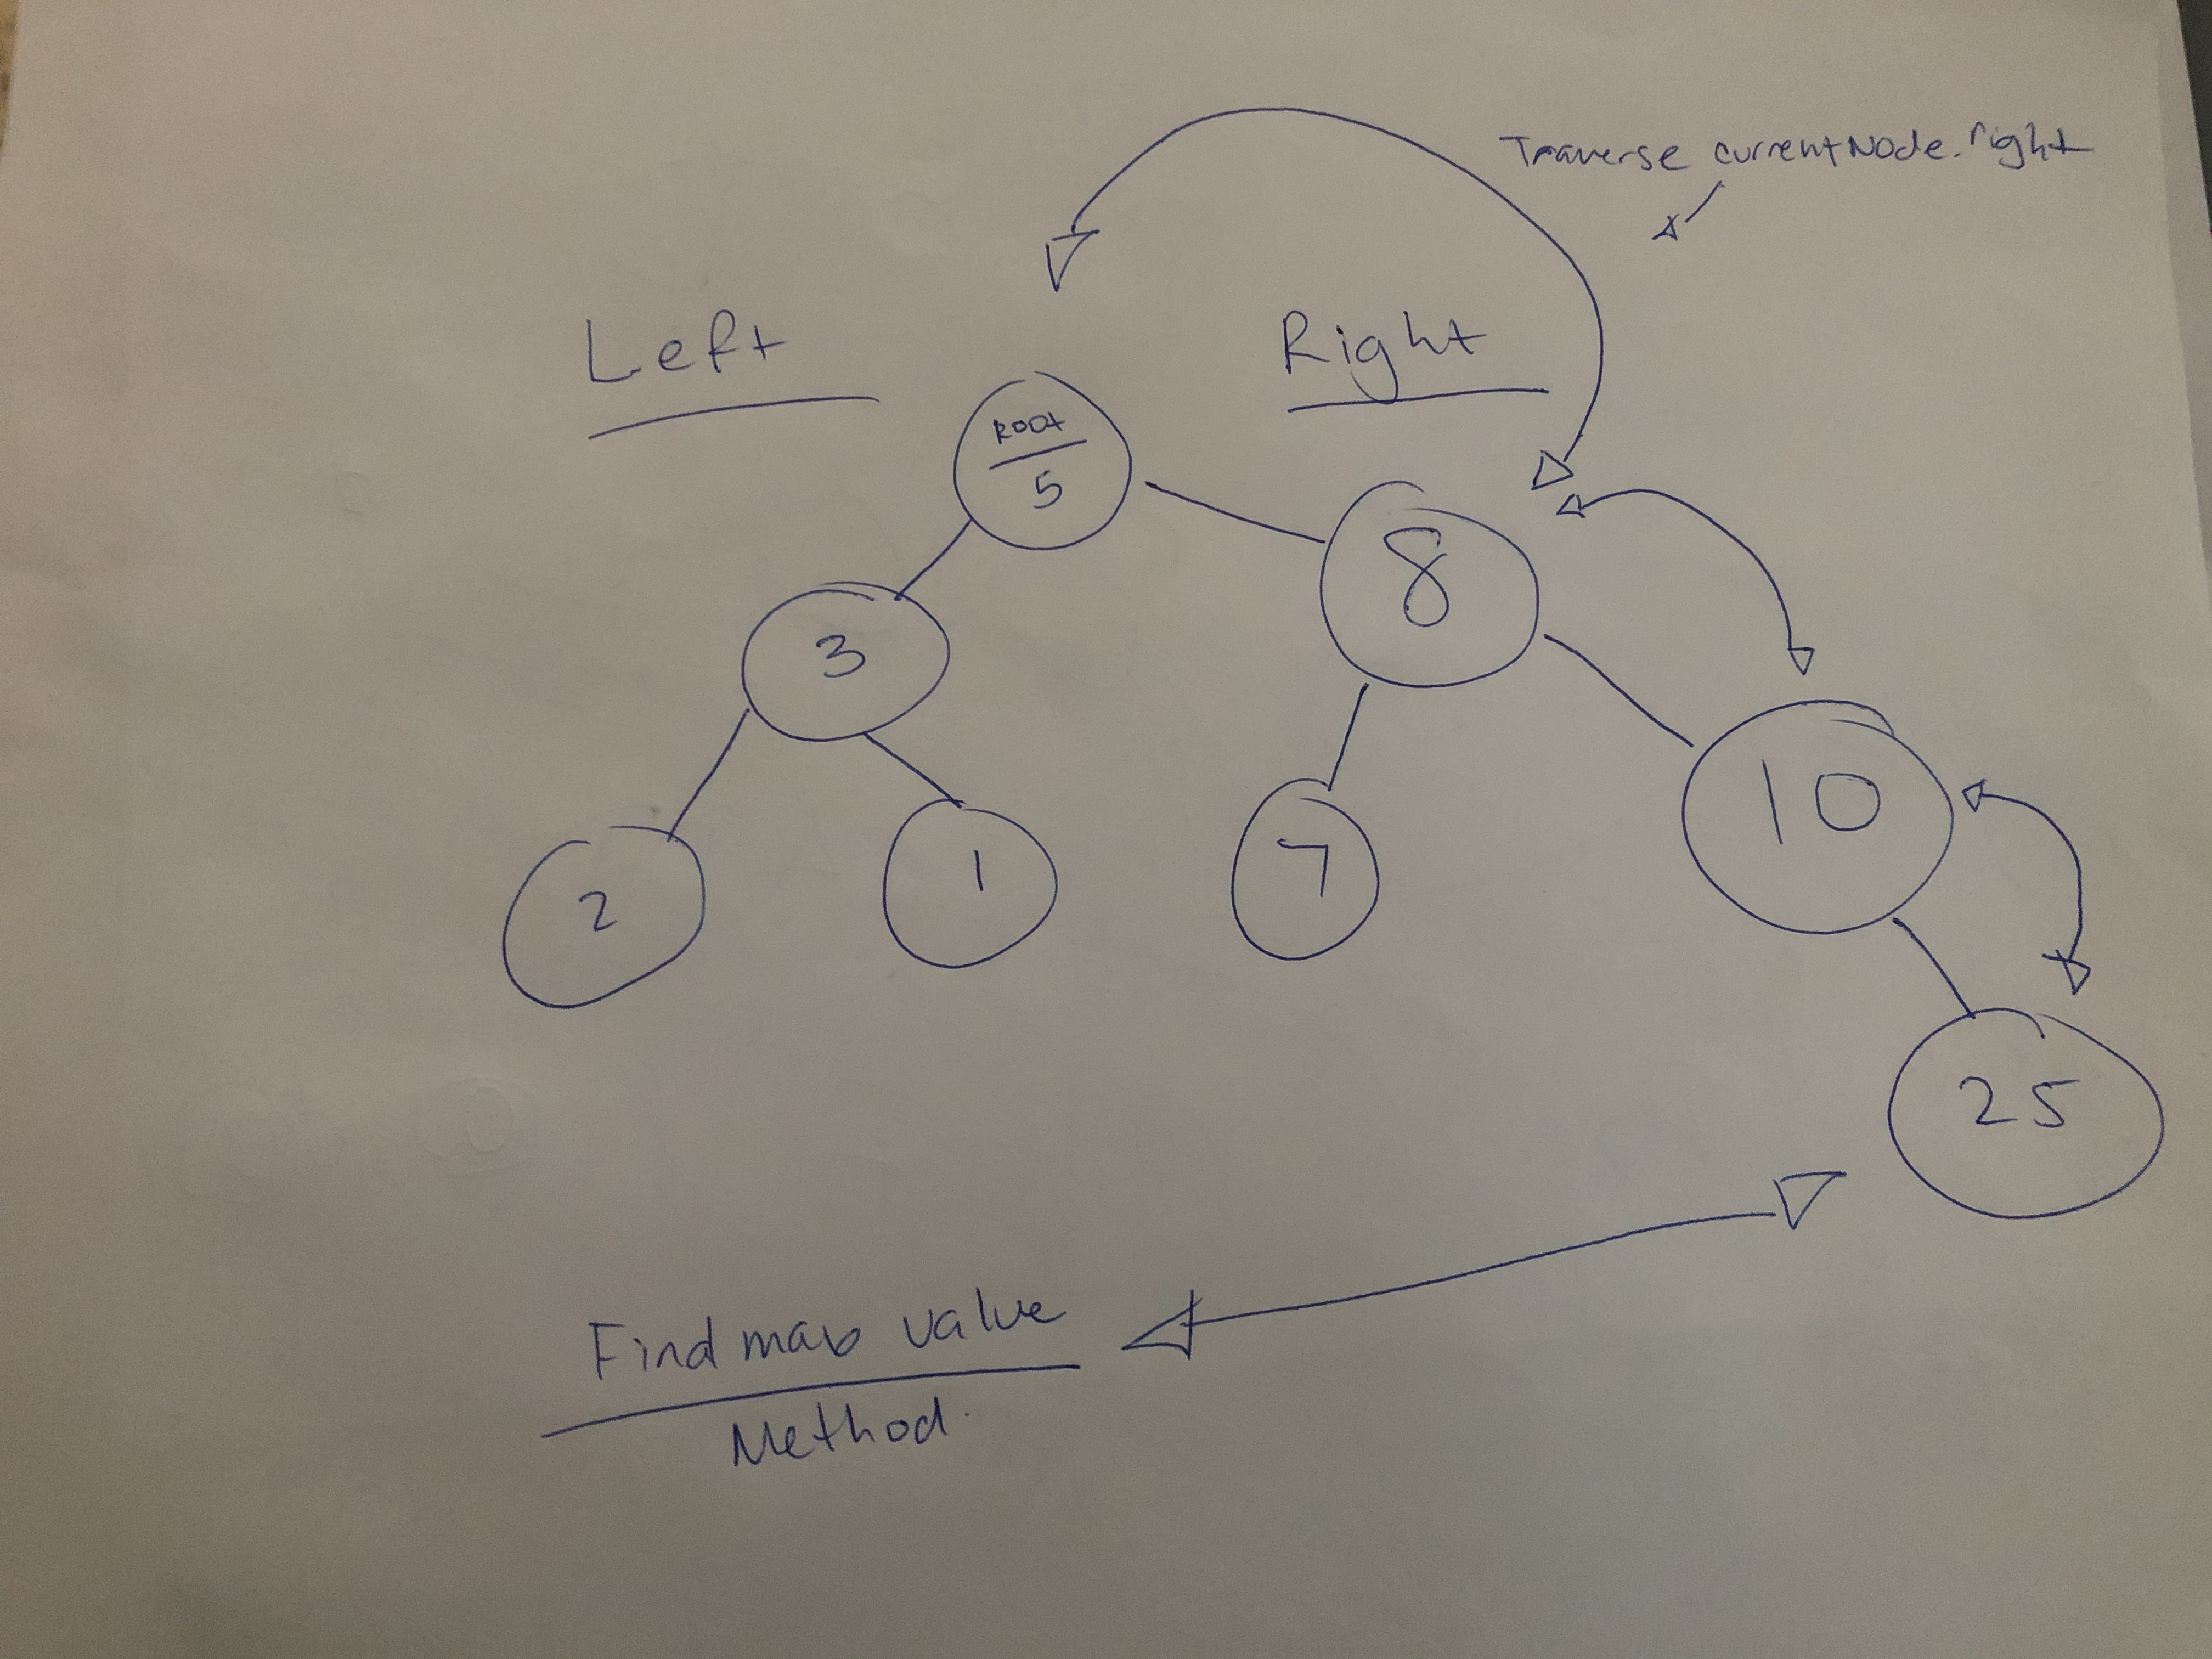 Traverse currentNode.right
Left
Right
Root
5
8
3
10
2
1
7
25
Find max value
Method.